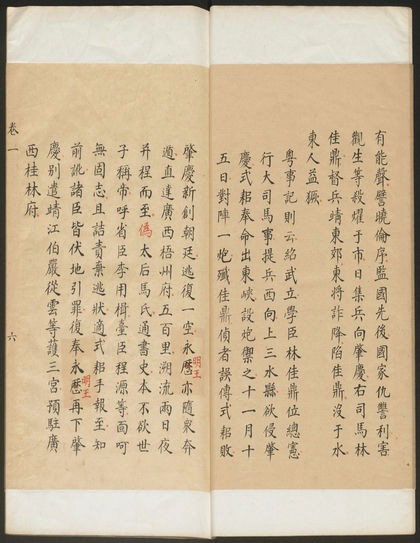 有能聲譬曉倫序監國先後國家仇讐利害
觀生等殺燿于市日集兵向肇慶右司馬林
佳鼎督兵靖東郊東將詐降陷佳鼎沒于水
東人益獗
粵事記則云紹武立學臣林佳鼎位總憲
行大司馬事提兵西向上三水縣欲侵肇
慶式耜奉命出東峽設炮禦之十一月十
五日對陣一炮殲佳鼎偵者誤傳式耜敗
肇慶新創朝廷逃復一空永曆亦隨衆奔
明王
遁直達廣西梧州府五百里溯流兩日夜
并程而至偽太后馬氏通書史本不欲世
子稱帝呼省臣李用楫臺臣程源等面呵
無固志且詰責棄逃狀適式耜手報至知
前訛諸臣皆伏地引罪復奉永曆再下肇
明王
慶別遣靖江伯嚴從雲等護三宮預駐廣
西桂林府
卷一
六